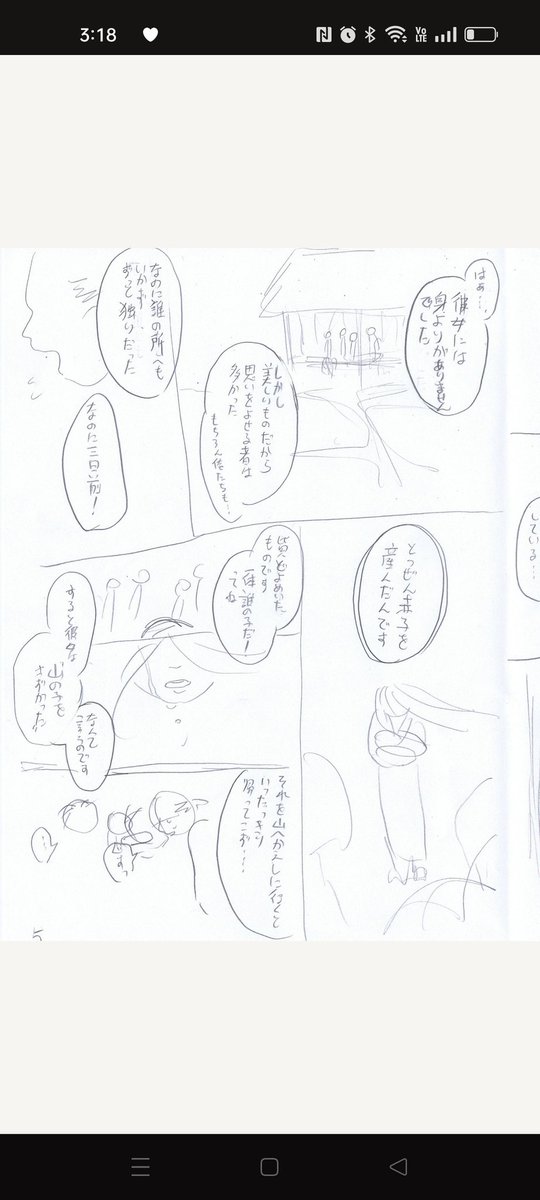 3:18
VoLTE
はあ…、
彼女には
身よりがありません
でした
しかし
美しいものだから
思いをよせる者は
多かった
もちろん俺たちも…
なのに誰の所へも
いかず
ずっと独りだった
なのに三日前!
している…
とつぜん赤子を
産んだんです
皆どよめいた
ものです
一体誰の子だ!
ってね
すると彼女は
山の子を
さずかった
なんて
言うのです
それを山へかえしに行くと
いったっきり
帰ってこず…
…
5